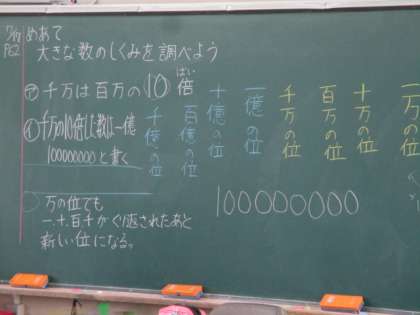 めあて
P62
大きな数のしくみを調べよう
ばい
㋐千万は百万の10倍
㋑千万の10倍した数は一億
100000000と書く
千億の位
百億の位
十億の位
一億の位
千万の位
百万の位
十万の位
一万の位
100000000
万の位でも
一、十、百、千がくり返されたあと
新しい位になる。